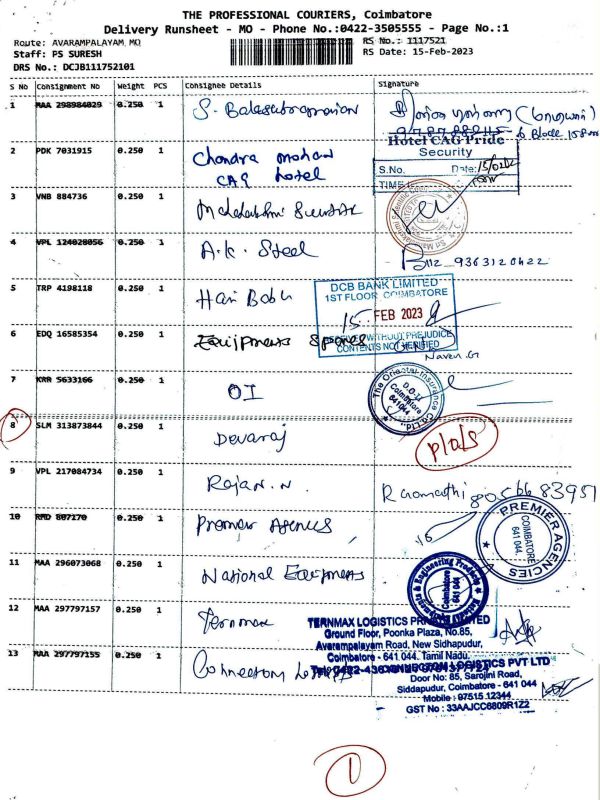 THE PROFESSIONAL COURIERS, Coimbatore
Delivery Runsheet - MO - Phone No.:0422-3505555 - Page No.:1
Route: AVARAMPALAYAM MO
RS No.: 1117521
Staff: PS SURESH
RS Date: 15-Feb-2023
DRS No.: DCJB111752101
S No Consignment No Weight PCS Consignee Details Signature
1 MAA 298984029 0.250 1 S. Balasubramanian
2 PDK 7031915 0.250 1 Chandra mohan
CAG hotel
Hotel CAG Pride
Security
S.No. Date: 15/02/
TIME
3 VNB 884736 0.250 1 Mahalakshmi
4 VPL 124028056 0.250 1 A.K. Steel
9363120422
5 TRP 4198118 0.250 1 Hari Babu
DCB BANK LIMITED
1ST FLOOR, COIMBATORE
15 FEB 2023
WITHOUT PREJUDICE
CONTENTS NOT VERIFIED
6 EDQ 16585354 0.250 1 Equipments Spares
Naven.G
7 KRR 5633166 0.250 1 OI
The Oriental Insurance Co. Ltd.
Coimbatore
641044
8 SLM 313873844 0.250 1 Devaraj
9 VPL 217084734 0.250 1 Rajan.N
R Gomathi 8056683951
10 RMD 807170 0.250 1 Premier Agencies
PREMIER AGENCIES
COIMBATORE
641 044.
11 MAA 296073068 0.250 1 National Equipments
Coimbatore
641 044
12 MAA 297797157 0.250 1 Ternmax
TERNMAX LOGISTICS PRIVATE LIMITED
Ground Floor, Poonka Plaza, No.85,
Avarampalayam Road, New Sidhapudur,
Coimbatore - 641 044. Tamil Nadu,
13 MAA 297797155 0.250 1
LOGISTICS PVT LTD
Door No: 85, Sarojini Road,
Siddapudur, Coimbatore - 641 044
Mobile : 97515 12344
GST No : 33AAJCC6809R1Z2
1